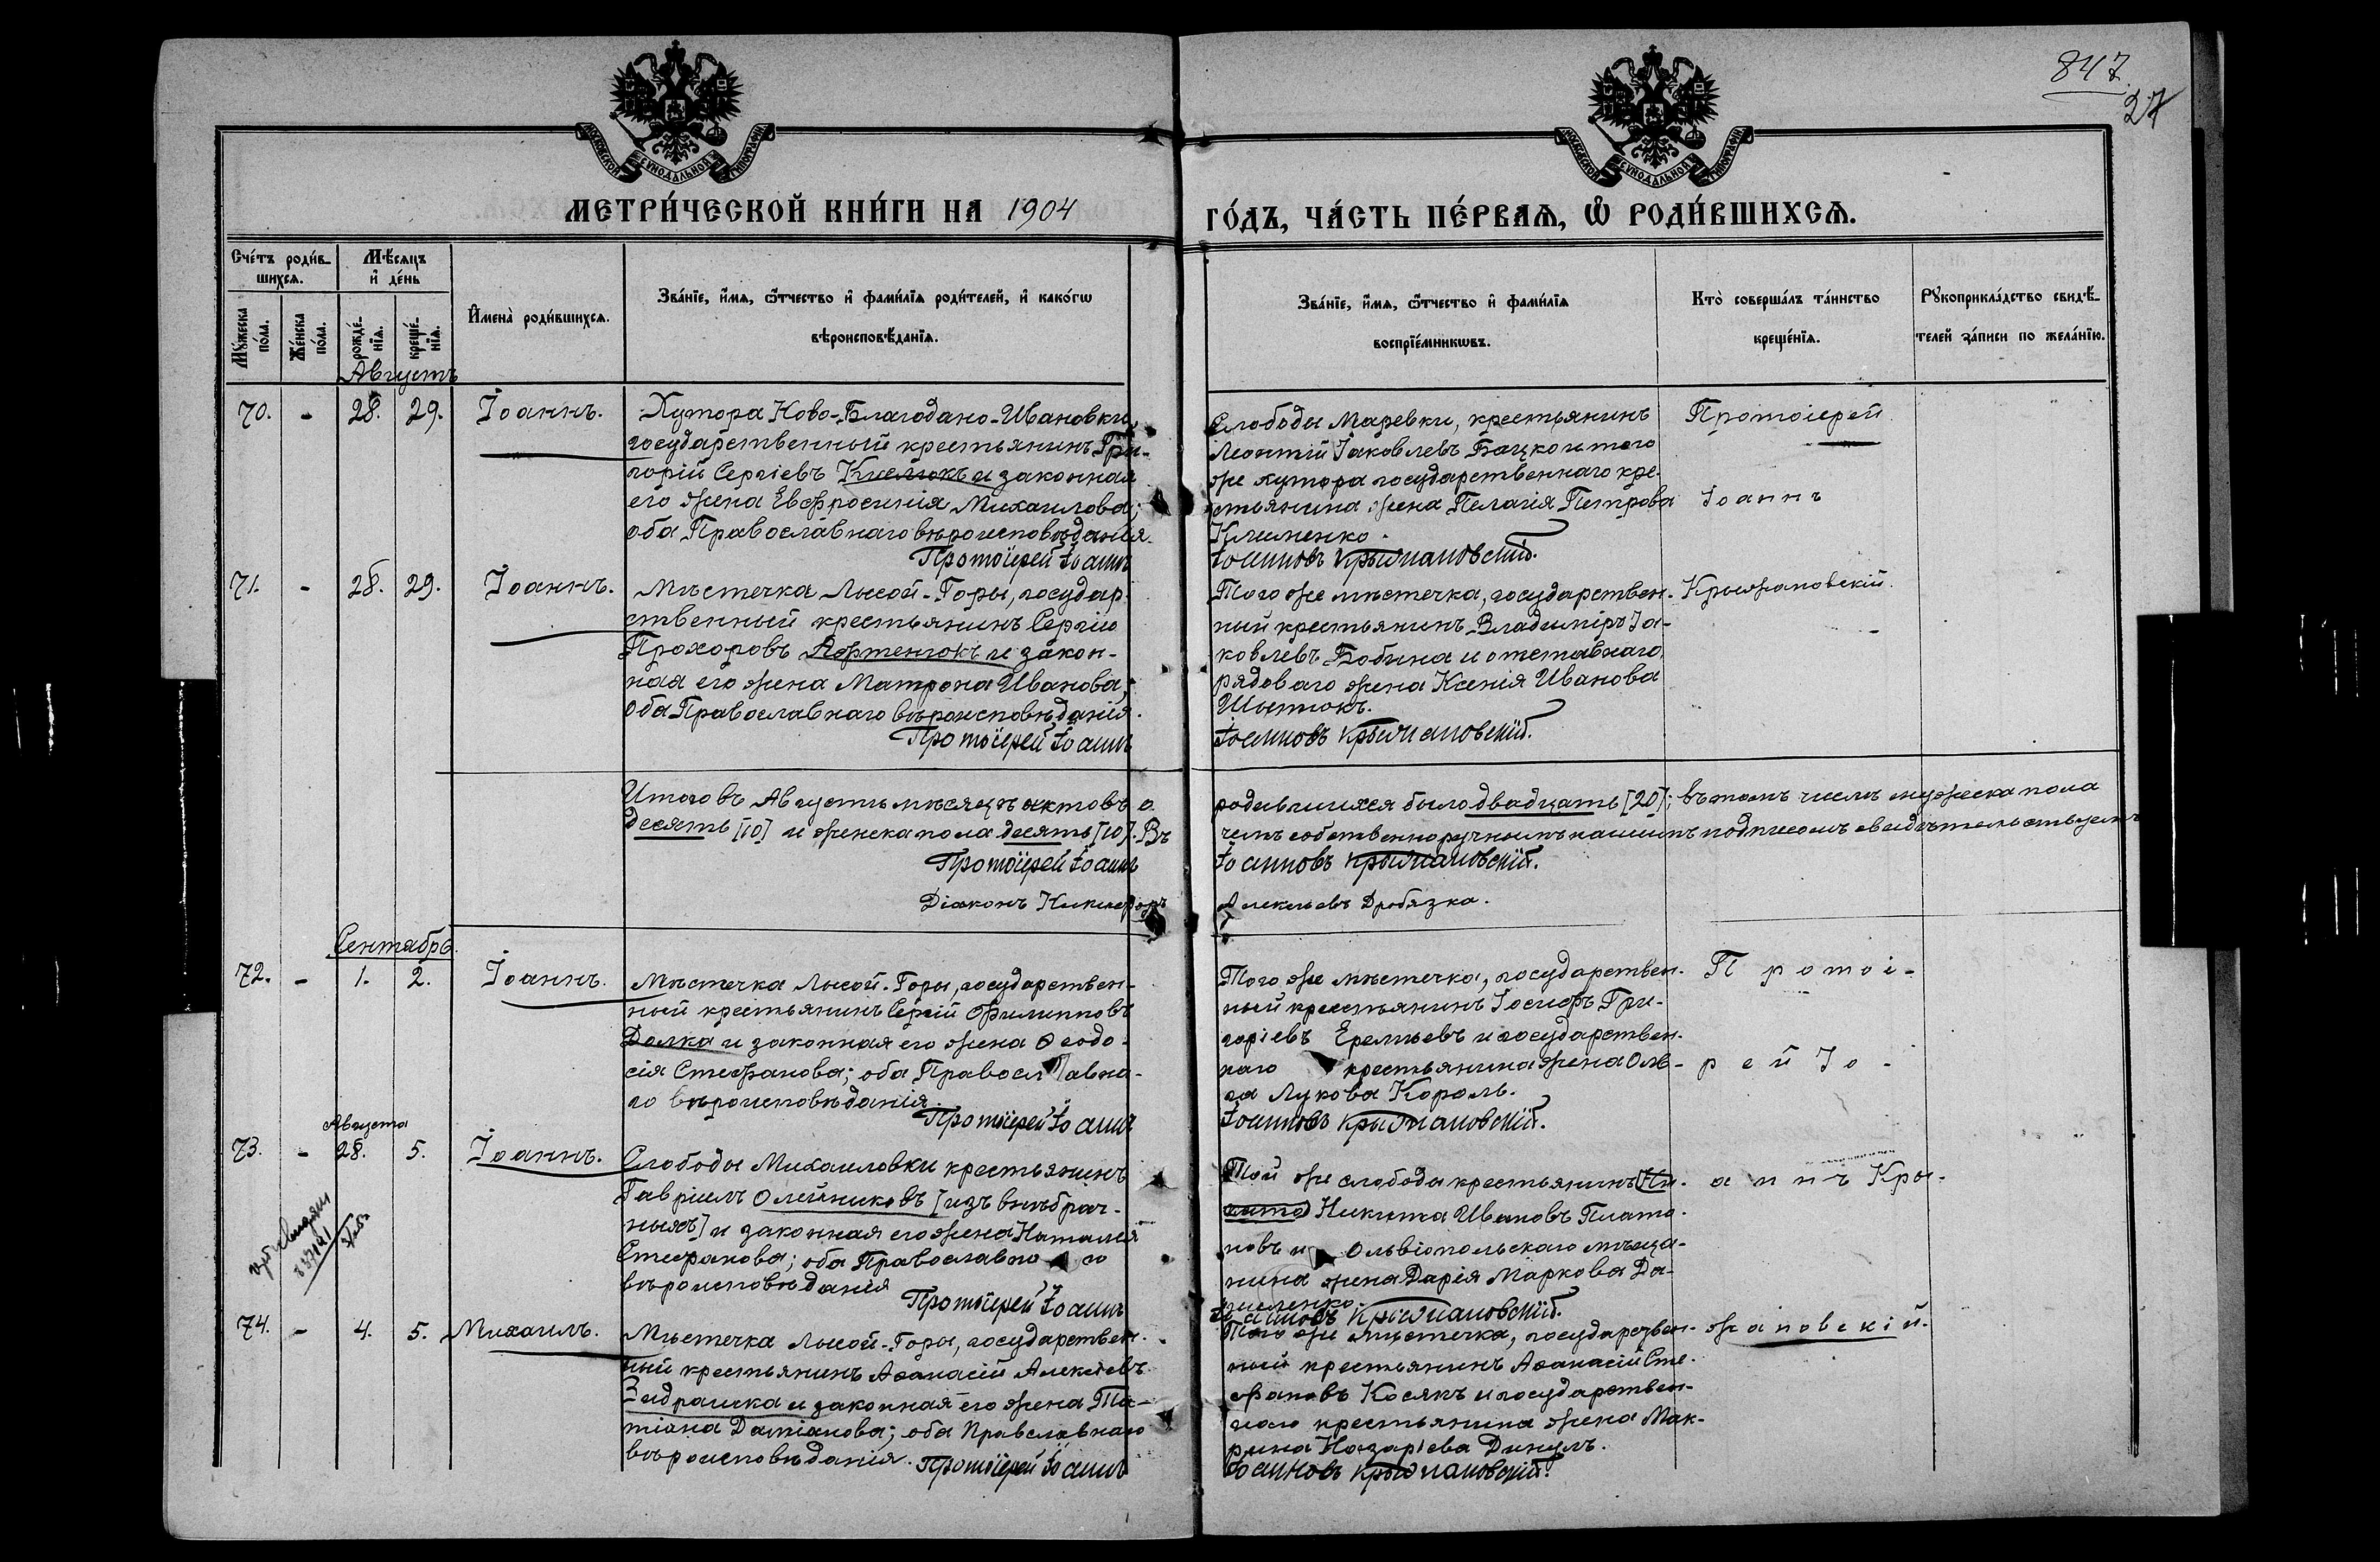 847
27
МОСКОВСКОЙ СѴНОДАЛЬНОЙ ТИПОГРАФІИ
МОСКОВСКОЙ СѴНОДАЛЬНОЙ ТИПОГРАФІИ
МЕТРИ́ЧЕСКОЙ КНИ́ГИ НА 1904
ГО́ДЪ, ЧА́СТЬ ПЕ́РВАѦ, Ѽ РОДИ́ВШИХСѦ.
Сче́тъ роди́в-
шихсѧ.
Мѣ́сѧцъ
и҆ де́нь
Мꙋ́жеска по́ла.
Же́нска по́ла.
рожде́-
нїѧ.
креще́-
нїѧ.
И҆мена̀ роди́вшихсѧ.
Зва́нїе, и҆́мѧ, ѻ҆́тчество и҆ фами́лїѧ роди́телей, и҆ како́гѡ
вѣроисповѣ́данїѧ.
Зва́нїе, и҆́мѧ, ѻ҆́тчество и҆ фами́лїѧ
воспрїе́мникѡвъ.
Кто̀ соверша́лъ та́инство
креще́нїѧ.
Рꙋкоприкла́дство свидѣ́-
телей за́писи по жела́нїю.
Августъ
70. - 28. 29. Іоаннъ.
Хутора Ново-Благодано-Ивановки,
государственный крестьянинъ Гри-
горій Сергіевъ Киселюкъ и законная
его жена Евфросинія Михаилова;
оба Православнаго вѣроисповѣданія.
Протоіерей Іоаннъ
Слободы Маревки, крестьянинъ
Леонтій Іаковлевъ Бацко и того
же хутора государственнаго кре-
стьянина жена Пелагія Петрова
Клименко.
Іоанновъ Крыжановскій.
Протоіерей
Іоаннъ
71. - 28. 29. Іоаннъ.
Мѣстечка Лысой-Горы, государ-
ственный крестьянинъ Сергій
Прохоровъ Артенюкъ и закон-
ная его жена Матрона Иванова;
оба Православнаго вѣроисповѣданія.
Протоіерей Іоаннъ
Того же мѣстечка, государствен-
ный крестьянинъ Владиміръ Іа-
ковлевъ Бобына и отставнаго
рядоваго жена Ксенія Иванова
Іоанновъ Крыжановскій.
Крыжановскій.
Итого въ Августѣ мѣсяцѣ актовъ о
родившихся было двадцать [20]; въ томъ числѣ мужеска пола
десять [10] и женска пола десять [10]. Въ
чемъ собственноручнымъ нашимъ подписомъ свидѣтельствуемъ
Протоіерей Іоаннъ
Іоанновъ Крыжановскій.
Діаконъ Никифоръ
Алексѣевъ Дробязка.
Сентябрь.
72. - 1. 2. Іоаннъ.
Мѣстечка Лысой-Горы, государствен-
ный крестьянинъ Сергій Филипповъ
Долка и законная его жена Ѳеодо-
сія Стефанова; оба Православна-
го вѣроисповѣданія.
Протоіерей Іоаннъ
Того же мѣстечка, государствен-
ный крестьянинъ Іосифъ Гри-
горіевъ Еремѣевъ и государствен-
наго крестьянина жена Оль-
га Лукова Король.
Іоанновъ Крыжановскій.
Протоі-
рей Іо-
Августа
73. - 28. 5. Іоаннъ.
Слободы Михаиловки крестьянинъ
Гавріилъ Олейниковъ [изъ внѣбрач-
ныхъ] и законная его жена Наталія
Стефанова; оба Православнаго
вѣроисповѣданія
Протоіерей Іоаннъ
Той же слободы крестьянинъ Ни-
кита Никита Ивановъ Плато-
новъ и Ольвіопольскаго мѣща-
нина жена Дарія Маркова Да-
ниленко.
Іоанновъ Крыжановскій.
аннъ Кры-
74. - 4. 5. Михаилъ.
Мѣстечка Лысой-Горы, государствен-
ный крестьянинъ Аѳанасій Алексѣевъ
Задрашка и законная его жена Та-
тіана Даміанова; оба Православнаго
вѣроисповѣданія.
Протоіерей Іоаннъ
Того же мѣстечка, государствен-
ный крестьянинъ Аѳанасій Сте-
фановъ Косякъ и государствен-
наго крестьянина жена Мак-
рина Назаріева Дикулъ.
Іоанновъ Крыжановскій.
жановскій.